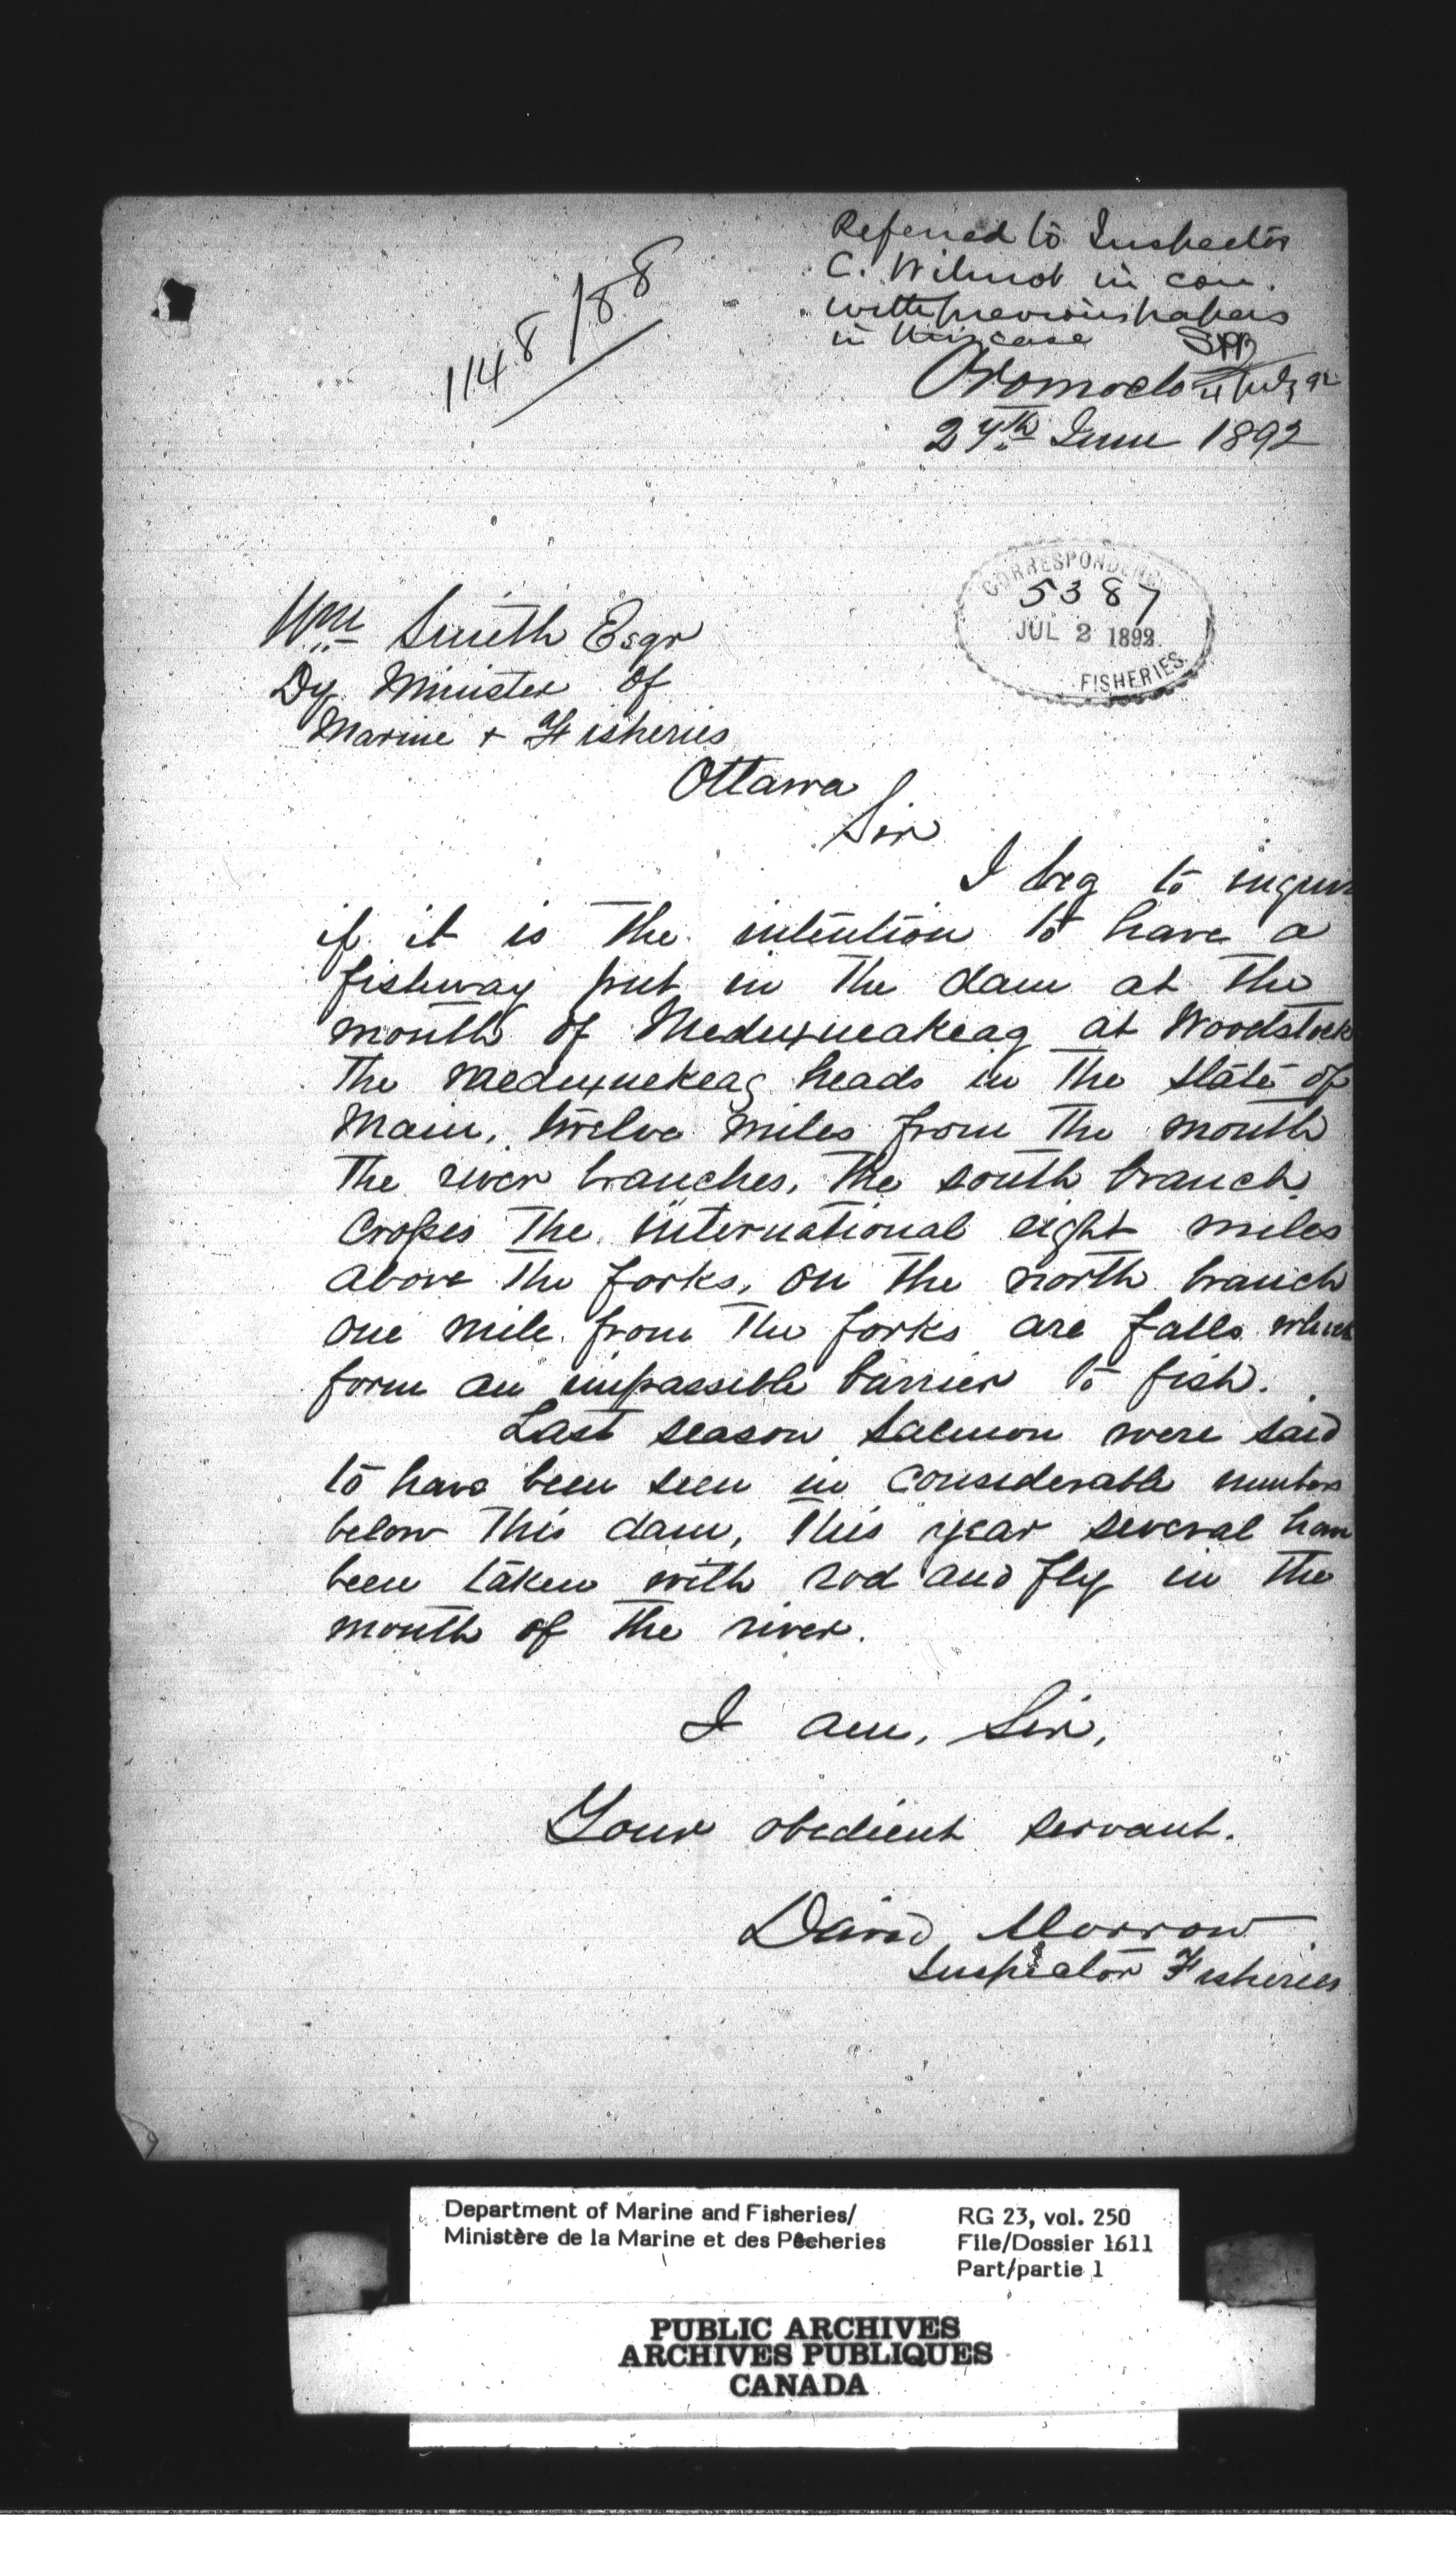 Referred to Inspector
C. Wilmot in con.
with previous papers
in this case SPB
1148/88
Oromocto 4 July 92
27th June 1892
CORRESPONDENCE
5387
JUL 2 1892
FISHERIES
Wm Smith Esqr
Dy. Minister of
Marine + Fisheries
Ottawa
Sir
I beg to inquire
if it is the intention to have a
fishway put in the dam at the
mouth of Meduxneakeag at Woodstock
The Meduxnekeag heads in the state of
Main, twelve miles from the mouth
the river branches, the south branch
crosses the international eight miles
above the forks, on the north branch
one mile from the forks are falls which
form an impassible barrier to fish.
Last season salmon were said
to have been seen in considerable numbers
below this dam, this year several have
been taken with rod and fly in the
mouth of the river.
I am, Sir,
Your obedient servant.
David Morrow
Inspector Fisheries
Department of Marine and Fisheries/
Ministère de la Marine et des Pêcheries
RG 23, vol. 250
File/Dossier 1611
Part/partie 1
PUBLIC ARCHIVES
ARCHIVES PUBLIQUES
CANADA